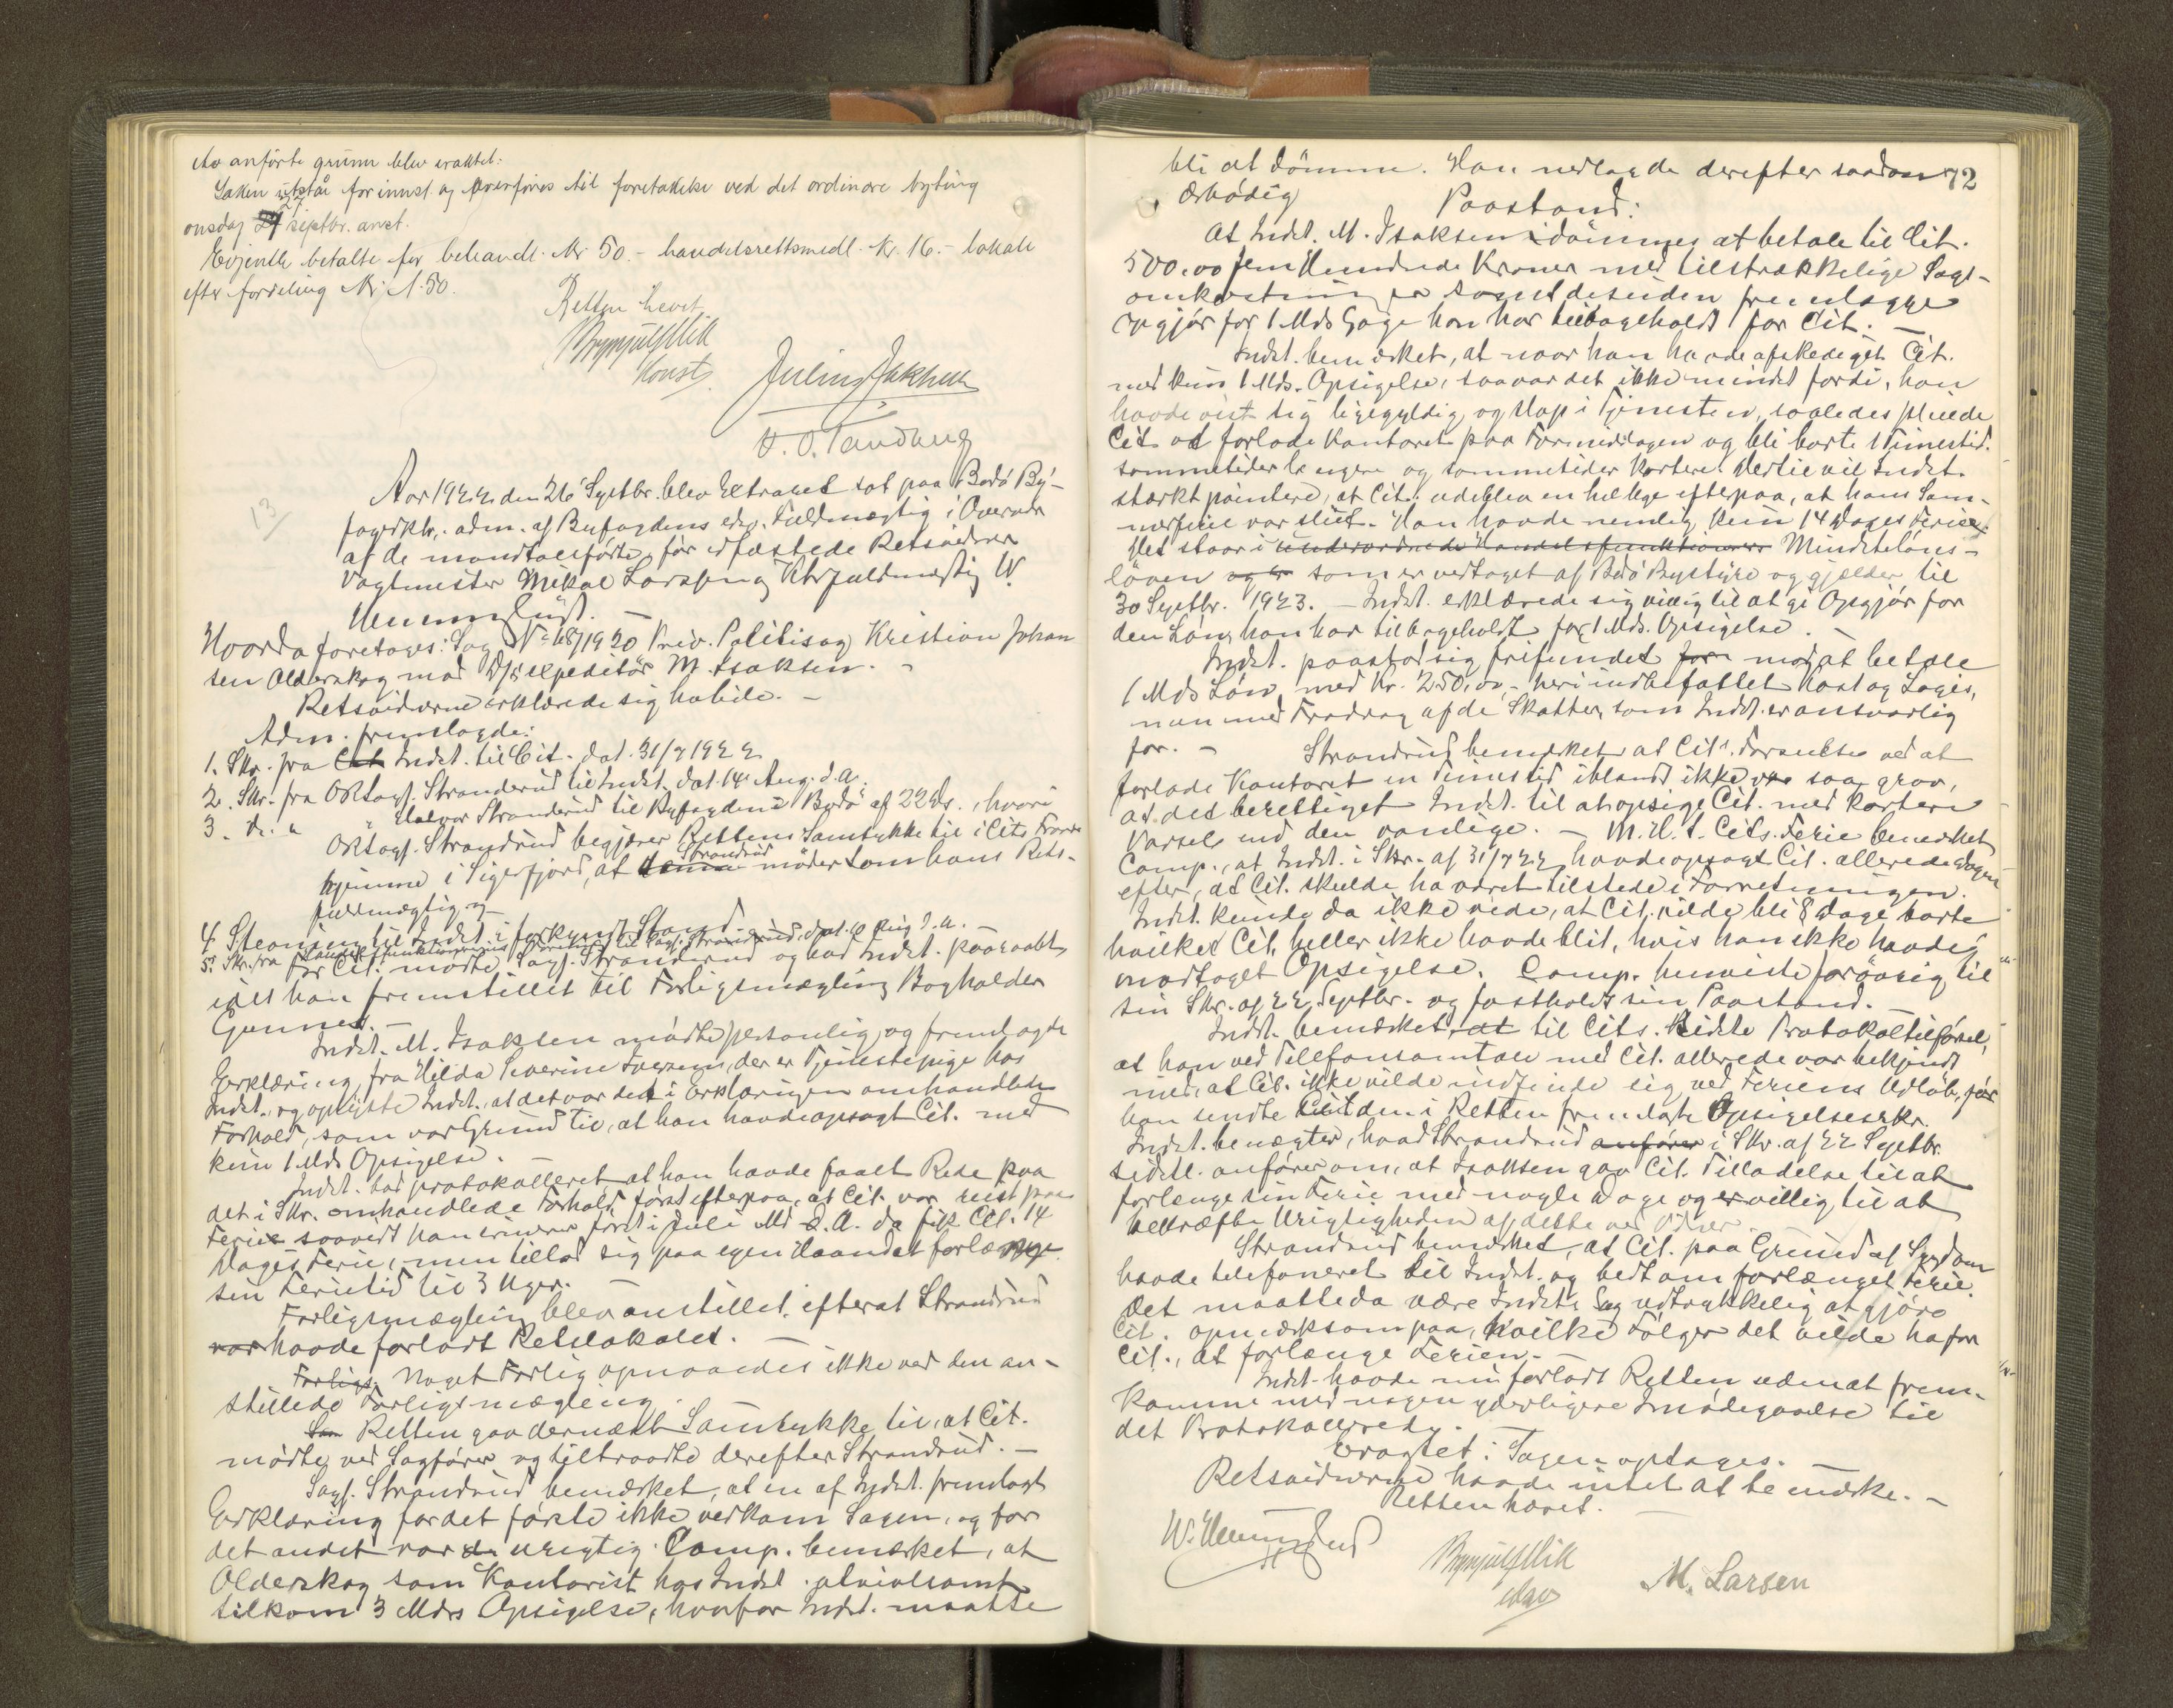 Av anførte grunn blev vedtatt:
Saken utstår forinnst. og overføres til foretakelse ved det ordinære byting
onsdag 27 septbr. anst.
Evjenth betalte for behandl. Kr 50.- handelsrettsmedl. Kr. 16.- lokale
efter fordeling Kr. 1.50.
Retten hevet
Brynjulf Vik
Konst.
Julius Jakhelln
H. O. Tandberg
13
Aar 1922 den 26 Septbr. blev Extraret sat paa Bodø By-
fogdktr. adm. af Byfogdens edsv. Fuldmægtig i Overvær
af de mandtalsførte før edfæstede Retsvidner
Vagtmester Mikal Larssen og Ktrfuldmægtig W.
Hemmingsud. —
Hvorda foretages: Sag No 48/1920 Priv. Politisag Kristian Johan
sen Olderskog mod D/s expeditør M. Isaksen. -
Retsvidnerne erklærede sig habile. -
Adm. fremlagde:
1. Skr. fra Cit Indst. til Cit. dat. 31/7 1922
2. Skr. fra ORsagf. Strandrud til Indst. dat. 14 Aug. d.a.
3. do. " " Halvor Strandrud til Byfogden i Bodø af 22 ds., hvori
ORsagf. Strandrud begjærer Rettens Samtykke til i Cits Fravær
hjemme i Sigerfjord, at denne Strandrud møder som hans Rets-
fuldmægtig og
4. Stevning til Indst. i forkyndt Stand.
5. Skr. fra Handelsfunktionærernes Forening til Sagf. Strandrud, dat. 10 Aug d.a.
For Cit. mødte Sagf. Strandrud og bad Indst. paaraabt
idet han fremstillet til Forligsmægling Bogholder
Gunnes. —
Indst. M. Isaksen mødte personlig og fremlagde
Erklæring fra Hilda Severine Iversen, der er Tjenestepige hos
Indst. og oplyste Indst., at det var det i Erklæringen omhandlede
Forhold, som var Grund til, at han havde opsagt Cit. med
kun 1 Mds Opsigelse. —
Indst. bad protokolleret at han havde faaet Rede paa
det i Skr. omhandlede Forhold først efterpaa, at Cit. var reist paa
Ferie saavidt han erindrer først i Juli Md d.A. da fik Cit. 14
Dages Ferie, men tillod sig paa egen Haand at forlænge
sin Ferietid til 3 Uger. —
Forligsmægling blev anstillet, efterat Strandrud
var havde forladt Retslokalet. —
Forligs. Noget Forlig opnaaedes ikke ved den an-
stillede Forligsmægling.
Sa Retten gav dernæst Samtykke til, at Cit.
mødte ved Sagfører og tiltraadte derefter Strandrud. —
Sagf. Strandrud bemærket, at en af Indst. fremlagt
Erklæring for det første ikke vedkom Sagen, og for
det andet var de urigtig. Comp. bemærket, at
Olderskog som Kontorist hos Indst. alvilsomt
tilkom 3 Mdrs Opsigelse, hvorfor Indst. maatte
72
bli at dømme. Han nedlagde derefter saadan
Ærbødig
Paastand:
At Indst. M. Isaksen idømmes at betale til Cit.
500.00 fem Hundrede Kroner med tilstrækkelige Sags-
omkostninger samt desuden fremlægge
Opgjør for 1 Mds Gage han har tilbageholdt for Cit. —
Indst. bemærket, at naar han havde afskediget Cit.
med kun 1 Mds. Opsigelse, saa var det ikke mindst fordi, han
havde vist sig ligegyldig og slap i Tjenesten, saaledes pleiede
Cit at forlade Kontoret paa Formiddagen og bli borte 1 Timestid.
sommetider længere og sommetider kortere. Dertil vil Indst.
stærkt pointere, at Cit. udeblev en hel Uge efterpaa, at hans Som-
merferie var slut. Han havde nemlig kun 14 Dages Ferie.
Det staar i underordnede Handelsfunktionærers Mindsteløns-
loven og er som er vedtaget af Bodø Bystyre og gjælder til
30 Septbr. 1923. — Indst. erklærede sig villig til at gi Opgjør for
den Løn, han har tilbageholdt for 1 Mds. Opsigelse. —
Indst. paastod sig frifundet for mod at betale
1 Mds Løn med Kr. 250.00, - heri indbefattet Kost og Logis,
men med Fradrag af de Skatter, som Indst. er ansvarlig
for. - Strandrud bemærket at Cits. Forseelse ved at
forlade Kontoret en Timestid iblandt ikke var saa grov,
at det berettiget Indst. til at opsige Cit. med kortere
Varsel end den vanlige. — M.H.t. Cits. Ferie bemærket
Comp., at Indst. i Skr. af 31/7 22 havde opsagt Cit. allerede Dagen
efter, at Cit. skulde ha været tilstede i Forretningen.
Indst. kunde da ikke vide, at Cit. vilde bli 8 dage borte
hvilket Cit. heller ikke havde blit, hvis han ikke havde
modtaget Opsigelse. Comp. henviste forøvrig til
sin Skr. af 22 Septbr. og fastholdt sin Paastand.
Indst. bemærket, at til Cits. sidste Protokoltilførsel,
at han ved Telefonsamtale med Cit. allerede var bekjendt
med, at Cit. ikke vilde indfinde sig ved Feriens Udløb, før
han sendte Cit. den i Retten fremlagte Opsigelsesskr.
Indst. benægter, hvad Strandrud anfører i Skr. af 22 Septbr.
sidstl. anfører om, at Isaksen gav Cit. Tilladelse til at
forlænge sin Ferie med nogle Dage og er villig til at
bekræfte Urigtigheden af dette ved Vidner.
Strandrud bemærket, at Cit. paa Grund af Sygdom
havde telefoneret til Indst. og bedt om forlænget Ferie.
Det maatte da være Indsts Sag udtrykkelig at gjøre
Cit. opmærksom paa, hvilke Følger det vilde ha for
Cit., at forlænge Ferien. —
Indst. havde nu forladt Retten uden at frem-
komme med nogen yderligere Imødegaaelse til
det Protokollerede.
Eragtet: Sagen optages. —
Retsvidnerne havde intet at bemærke. —
Retten hævet.
W. Hemmingsud
Brynjulf Vik
edsv
M. Larsen